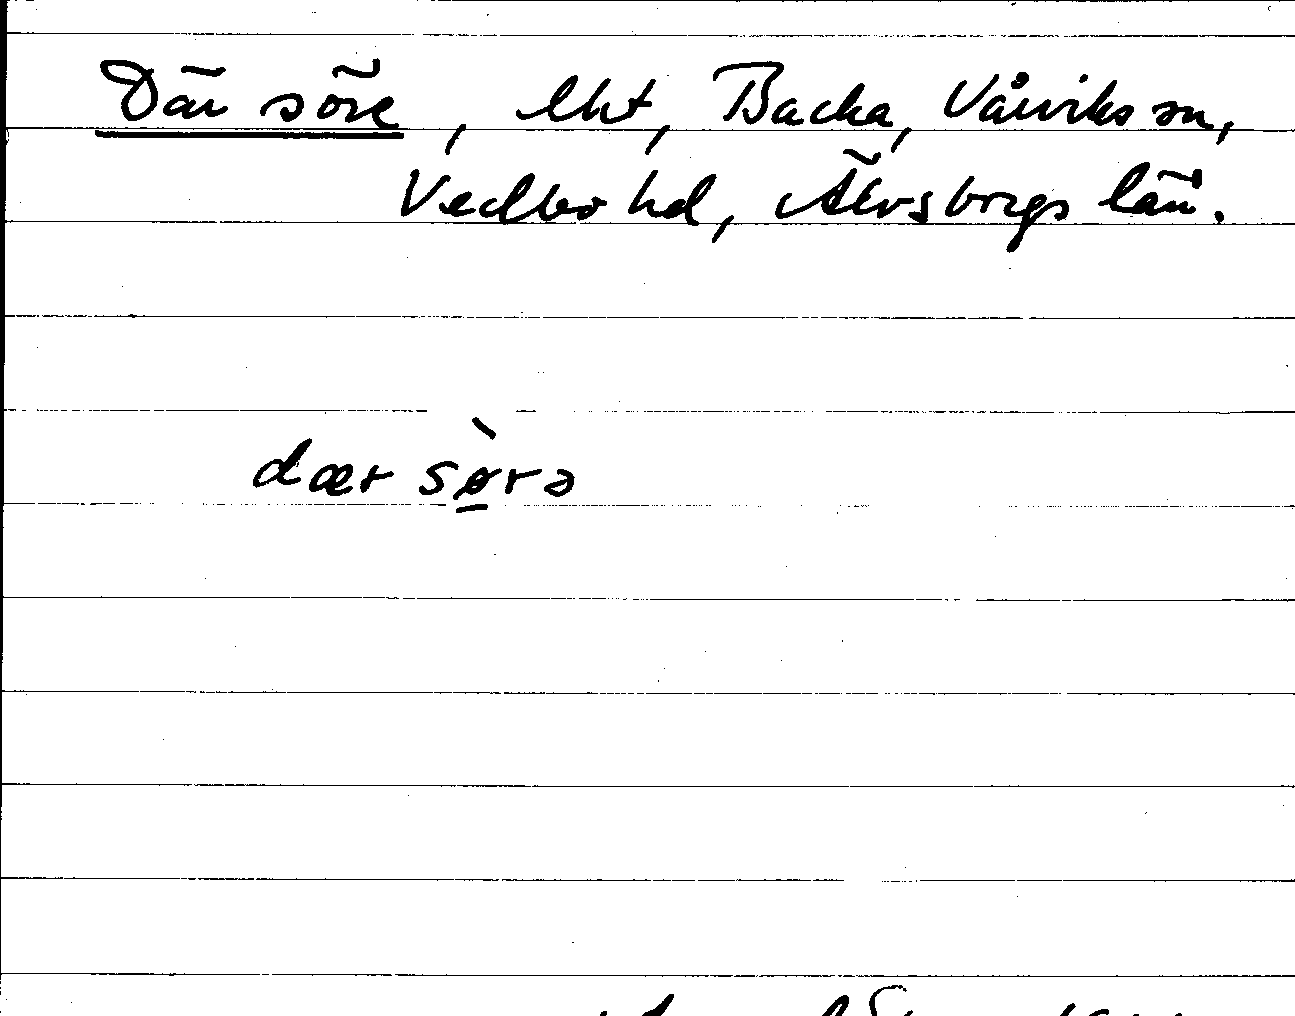 Där söre, lht, Backa, Vårviks sn,
Vedbo hd, Älvsborgs län.
dær sø̱̀rə